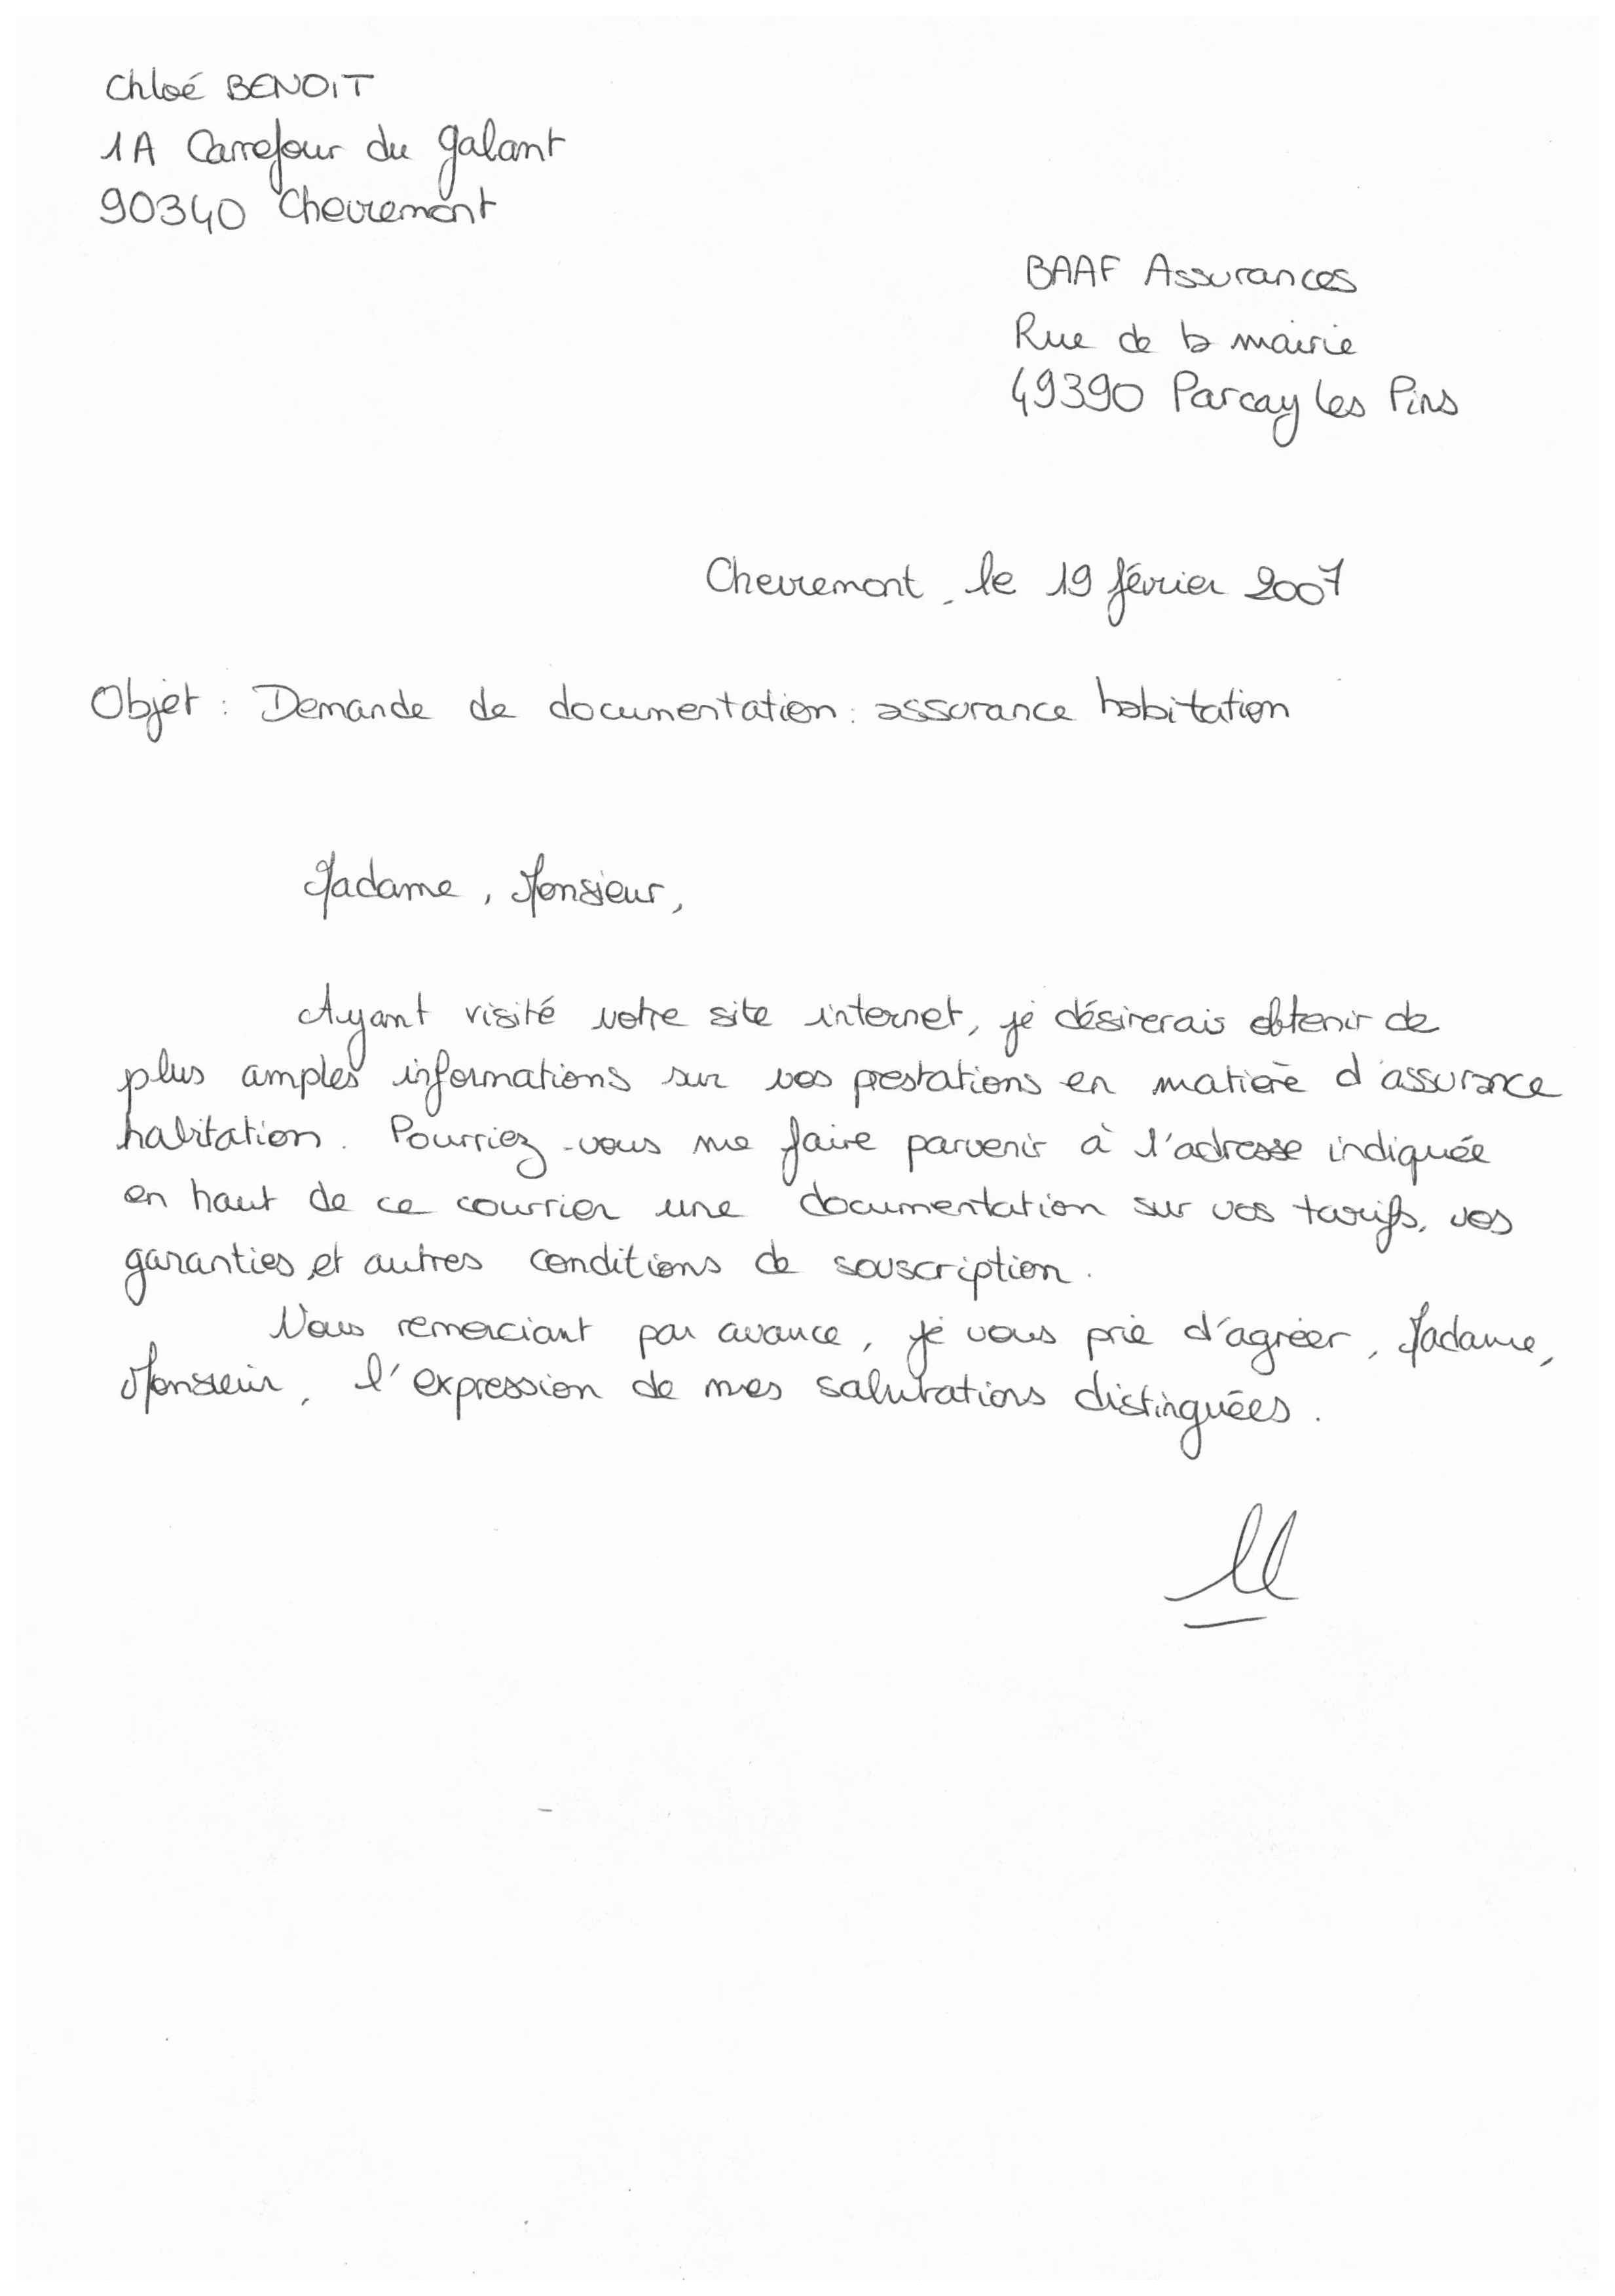 Chloé BENOIT
1A Carrefour du galant
90340 Chevremont
BAAF Assurances
Rue de la mairie
49390 Parcay les Pins
Chevremont, le 19 février 2007
Objet : Demande de documentation : assurance habitation
Madame, Monsieur,
Ayant visité votre site internet, je désirerais obtenir de
plus amples informations sur vos prestations en matière d'assurance
habitation. Pourriez-vous me faire parvenir à l'adresse indiquée
en haut de ce courrier une documentation sur vos tarifs, vos
garanties, et autres conditions de souscription.
Vous remerciant par avance, je vous prie d'agréer, Madame,
Monsieur, l'expression de mes salutations distinguées.